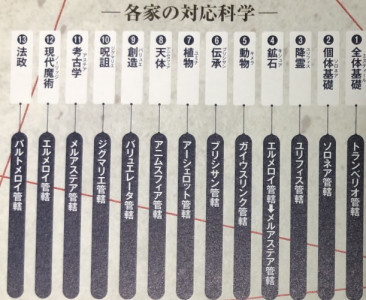 各家の対応科学
❶ 全体基礎
トランベリオ管轄
❷ 個体基礎
ソロネア管轄
❸ 降霊
ユリフィス管轄
❹ 鉱石
エルメロイ管轄➡メルアステア管轄
❺ 動物
ガイウスリンク管轄
❻ 伝承
ブリシサン管轄
❼ 植物
アーシェロット管轄
❽ 天体
アニムスフィア管轄
❾ 創造
バリュエレータ管轄
❿ 呪詛
ジグマリエ管轄
⓫ 考古学
メルアステア管轄
⓬ 現代魔術
エルメロイ管轄
⓭ 法政
バルトメロイ管轄